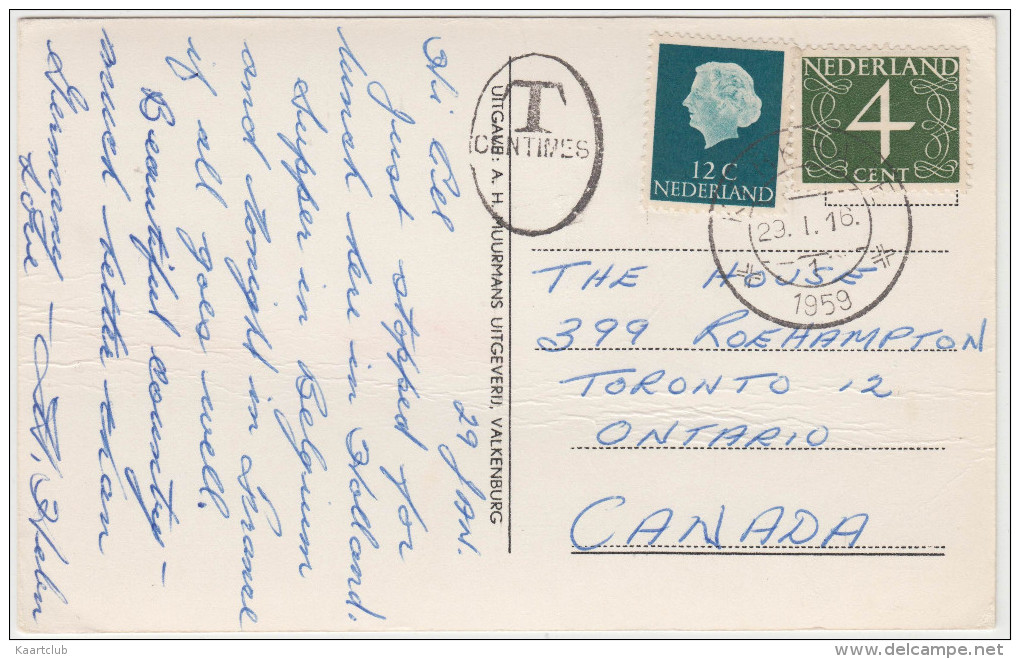 29 JAN.
Hi Cec
Just stopped for
lunch here in Holland.
Supper in Belgium
and tonight in France
if all goes well.
Beautiful country –
much better than
Germany
Love –
UITGAVE: A. H. MUURMANS UITGEVERIJ, VALKENBURG
T
CENTIMES
12 C
NEDERLAND
NEDERLAND
4
CENT
29. I. 16.
1
1959
THE HOUSE
399 ROEHAMPTON
TORONTO 12
ONTARIO
CANADA
Kaartclub
www.delcampe.net